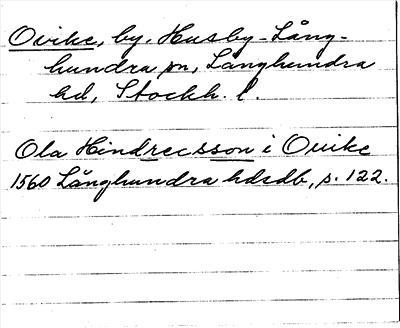 Ovike, by. Husby-Lång-
hundra sn, Långhundra
hd, Stockh. l.
Ola Hindrecsson i Ovike
1560 Långhundra hdsdb, s. 122.